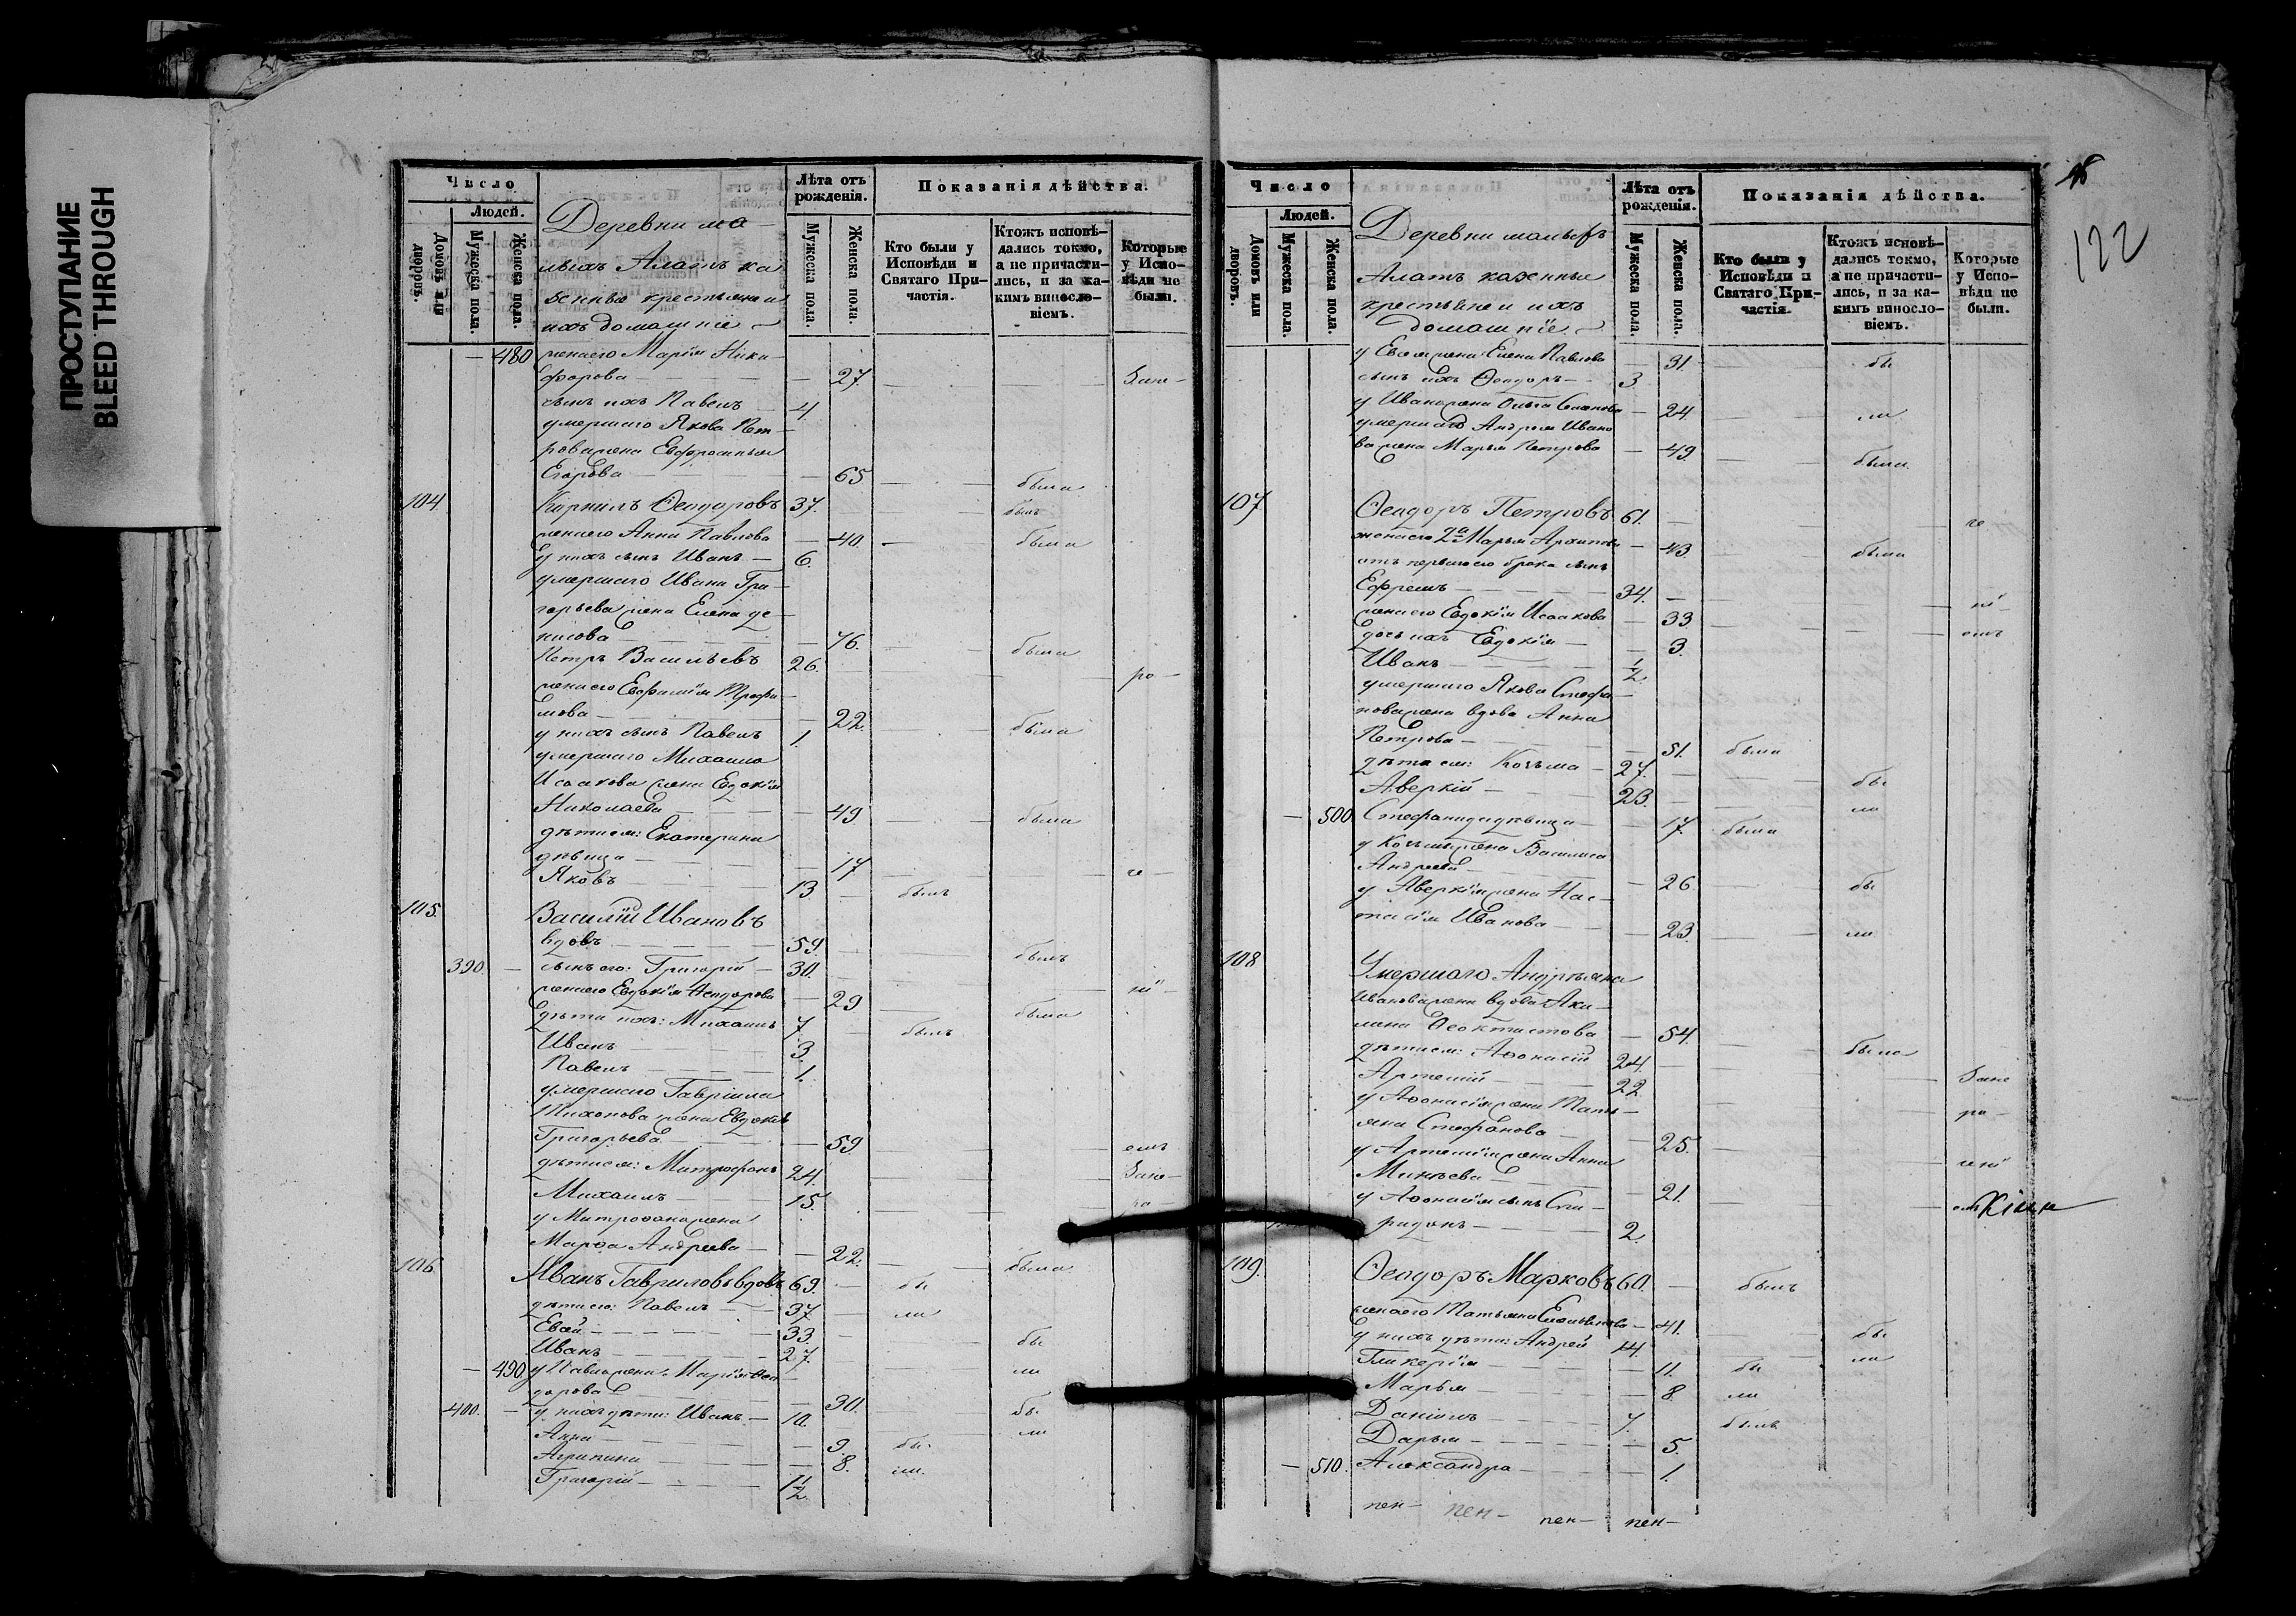 ПРОСТУПАНИЕ
BLEED THROUGH
Число
Людей.
Домовъ или дворовъ.
Мужеска пола.
Женска пола.
Деревни ма-
лыхъ Алатъ ка
зенные крестьяне и
ихъ домашніе
Лѣта отъ рожденія.
Мужеска пола.
Женска пола.
Показанія дѣйства.
Кто были у Исповѣди и Святаго Причастія.
Ктожъ исповѣдались токмо, а не причастились, и за какимъ винословіемъ.
Которые у Исповѣди не были.
— 480 жена его Марія Ники-
форова — 27 Зане-
сынъ ихъ Павелъ 4
умершаго Якова Пет-
рова жена Евфросинья
Егорова — 65 была
104 Корнилъ Ѳеодоровъ 37. былъ
жена его Анна Павлова — 40. была
у нихъ сынъ Иванъ 6.
умершаго Ивана Гри-
горьева жена Елена Де-
нисова — 76. была
Петръ Васильевъ 26. ра-
жена его Евфимія Трофи-
мова — 22. была
у нихъ сынъ Павелъ 1.
умершаго Михаила
Исаакова жена Евдокія
Николаева — 49 была
дѣти ея: Екатерина
дѣвица — 17 че-
Яковъ 13 былъ
105. Василій Ивановъ
вдовъ 59. былъ
390 — сынъ его: Григорій 30. ні-
жена его Евдокія Ѳеодорова — 29 была
дѣти ихъ: Михаилъ 7 былъ
Иванъ 3.
Павелъ 1.
умершаго Гавріила
Тихонова жена Евдокія
Григорьева — 59 емъ
дѣти ея: Митрофанъ 24. Зане-
Михаилъ 15. ра-
у Митрофана жена
Марѳа Андреева — 22. была
106. Иванъ Гавриловъ вдовъ 69. бы
дѣти его: Павелъ 37 ли
Евѳей 33. бы
Иванъ 27.
— 490 у Павла жена Марія Ѳео- ли
дорова — 30.
400. — у нихъ дѣти: Иванъ 10. бы
Анна — 9. бы ли
Агрипина — 8. ли
Григорій 1½
18
122
Число
Людей.
Домовъ или дворовъ.
Мужеска пола.
Женска пола.
Деревни малыхъ
Алатъ казенные
крестьяне и ихъ
домашніе
Лѣта отъ рожденія.
Мужеска пола.
Женска пола.
Показанія дѣйства.
Кто были у Исповѣди и Святаго Причастія.
Ктожъ исповѣдались токмо, а не причастились, и за какимъ винословіемъ.
Которые у Исповѣди не были.
у Евѳея жена Елена Павлова — 31. бы
сынъ ихъ Ѳеодоръ 3
у Ивана жена Ольга Семенова — 24. ли
умершаго Андрея Ивано
ва жена Марья Петрова — 49. была
107. Ѳеодоръ Петровъ 61. че
жена его 2я Марья Архипова — 43. была
отъ перваго его брака сынъ
Ефремъ 34. ні-
жена его Евдокія Исаакова — 33. емъ
дочь ихъ Евдокія — 3.
Иванъ ½
умершаго Якова Стефа-
нова жена вдова Анна
Петрова — 51. была
дѣти ея: Козьма 27. бы
Аверкій 23. ли
— 500 Стефанида дѣвица — 17. была
у Козьмы жена Василиса
Андреева — 26. бы
у Аверкія жена Нас-
тасія Иванова — 23. ли
108 Умершаго Андреяна
Иванова жена вдова Аки-
лина Ѳеоктистова — 54. была
дѣти ея: Аѳонасій 24. Зане
Артемій 22 ра-
у Аѳонасія жена Тать-
яна Стефанова — 25. чені
у Артемія жена Анна
Минѣева — 21. емъ
у Аѳонасія сынъ Спи-
ридонъ 2.
109. Ѳеодоръ Марковъ 60. былъ
жена его Татьяна — 41. бы
у нихъ дѣти: Андрей 14. ли
Гликерія — 11. бы
Марья — 8. ли
Даніилъ 7. былъ
Дарья — 5.
— 510. Александра — 1.
пен- пен- пен- пен-